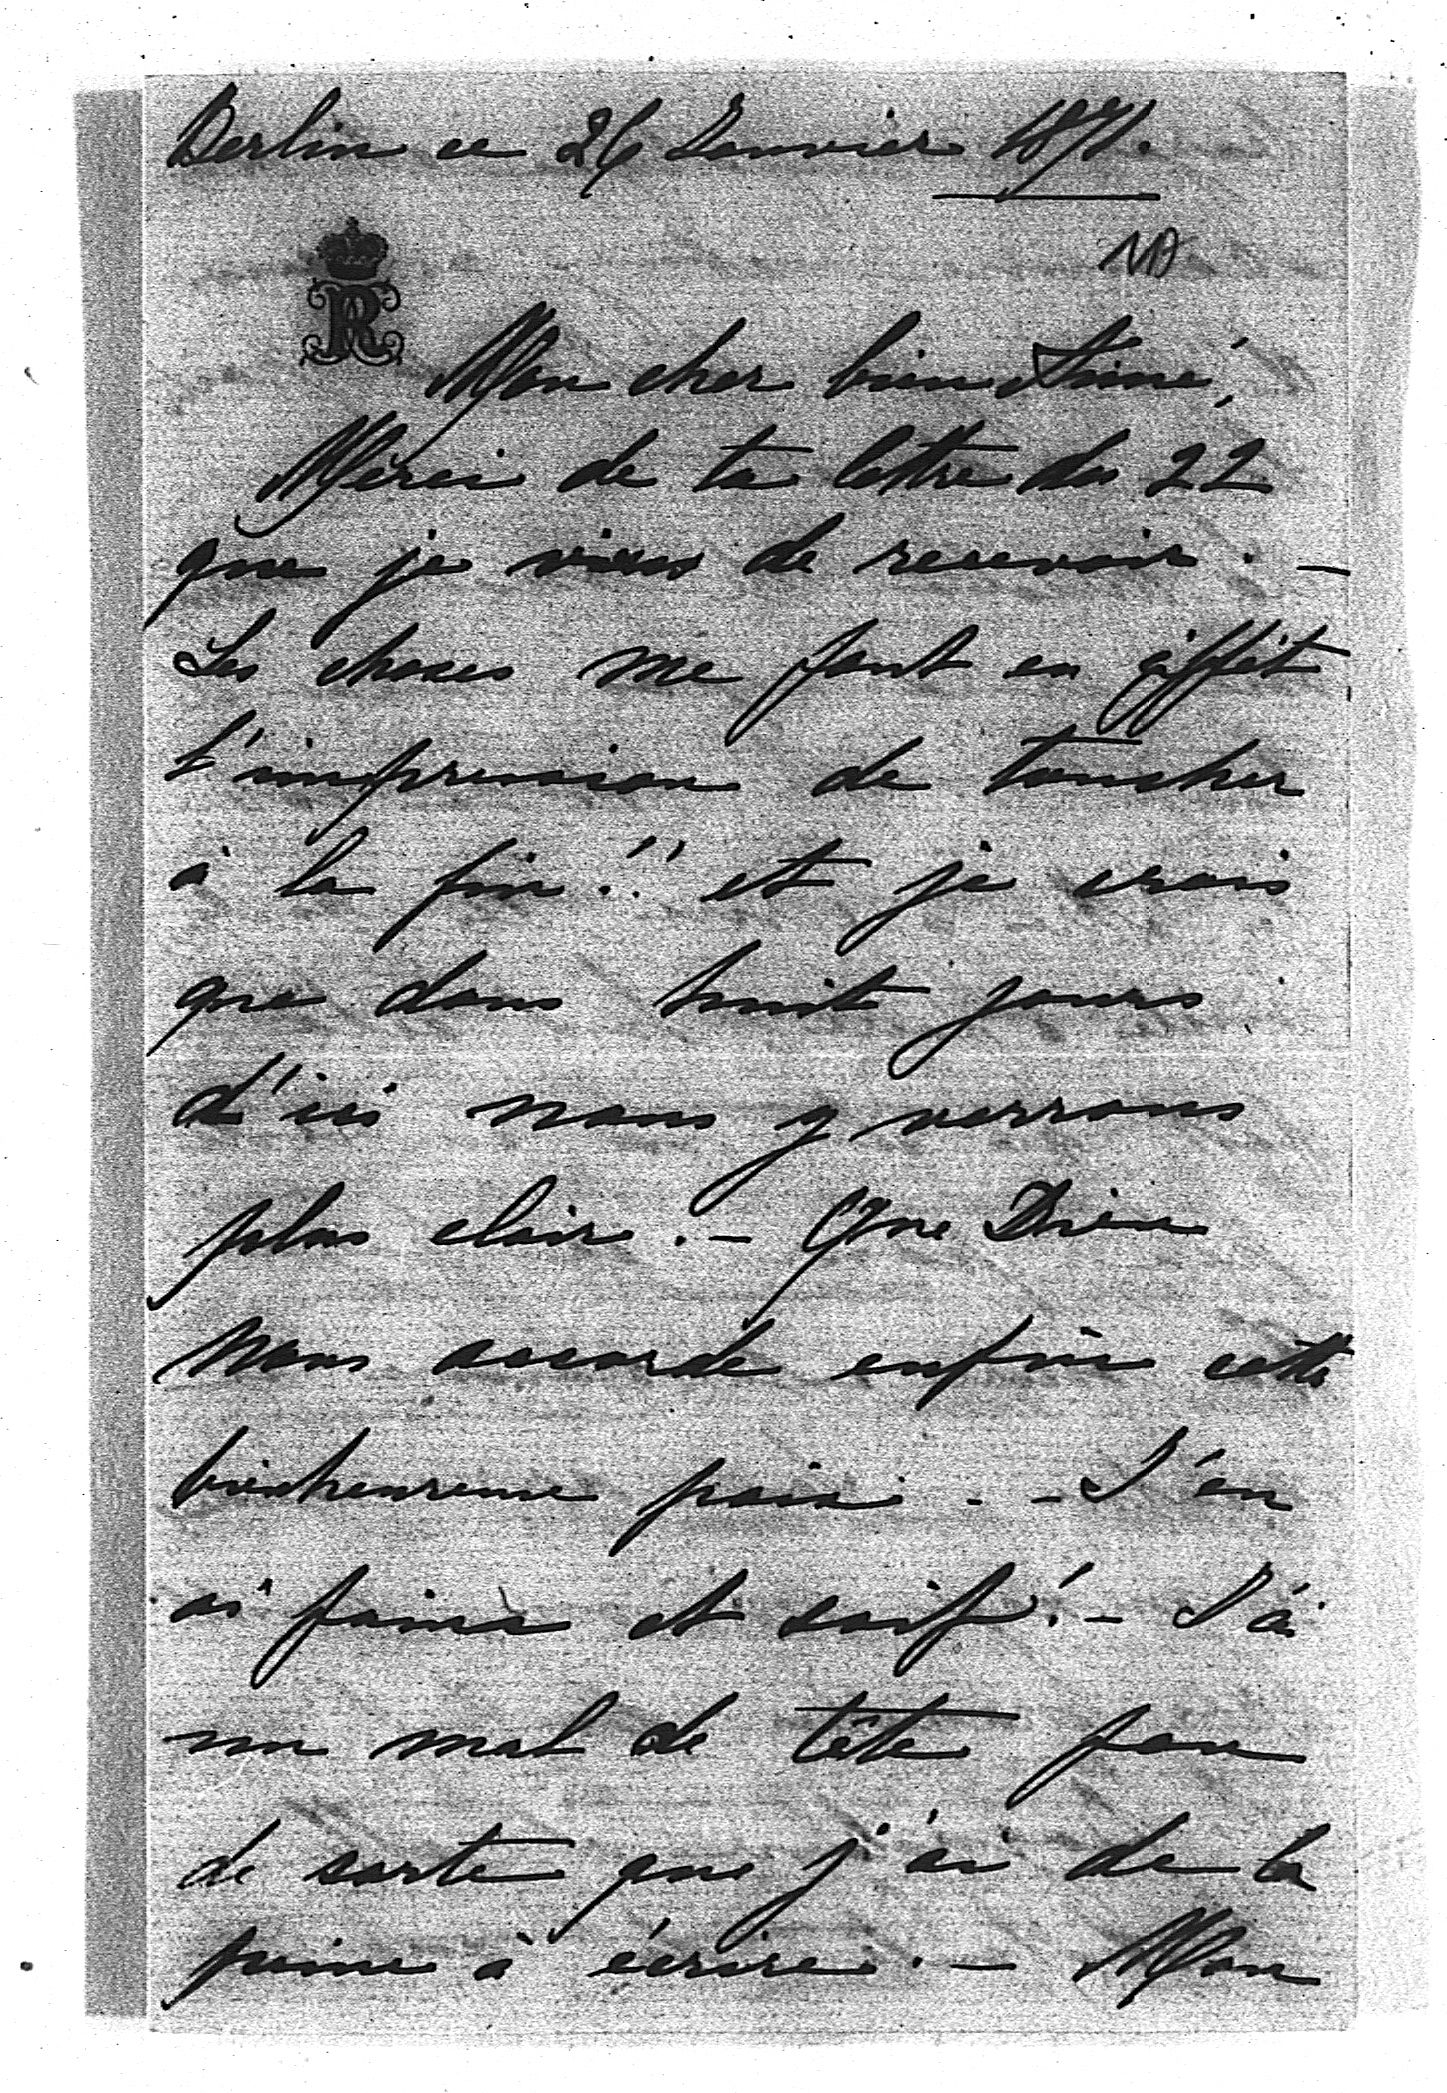 Berlin ce 26 Janvier 1871.
Mon cher bien Aimé,
Merci de ta lettre du 22
que je viens de recevoir. —
Les choses me font en effet
l'impression de toucher
à la fin!! et je crois
que dans huit jours
d'ici nous y verrons
plus clair. — Que Dieu
nous accorde enfin cette
bienheureuse paix. — J'en
ai faim et soif! — J'ai
un mal de tête fou
de sorte que j'ai de la
peine à écrire. — Mon